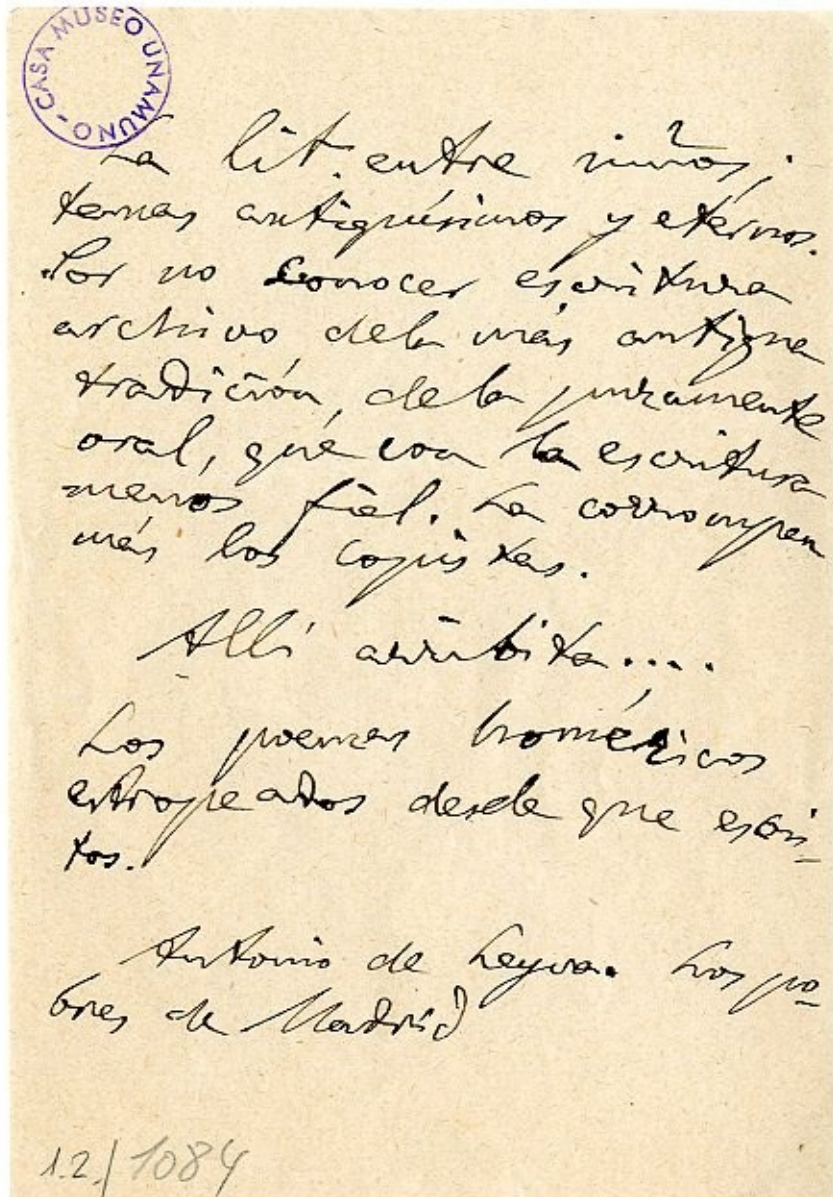 CASA MUSEO UNAMUNO -
La lit. entre niños;
temas antiquísimos y etérnos.
Por no conocer escritura
archivo de la más antigua
tradición, de la puramente
oral, que con la escritura
menos fiel. La corrompen
más los copistas.
Allí arribita....
Los poemas homéricos
estropeados desde que escri-
tos.
Antonio de Leyva. Los po-
bres de Madrid
1.2./1084